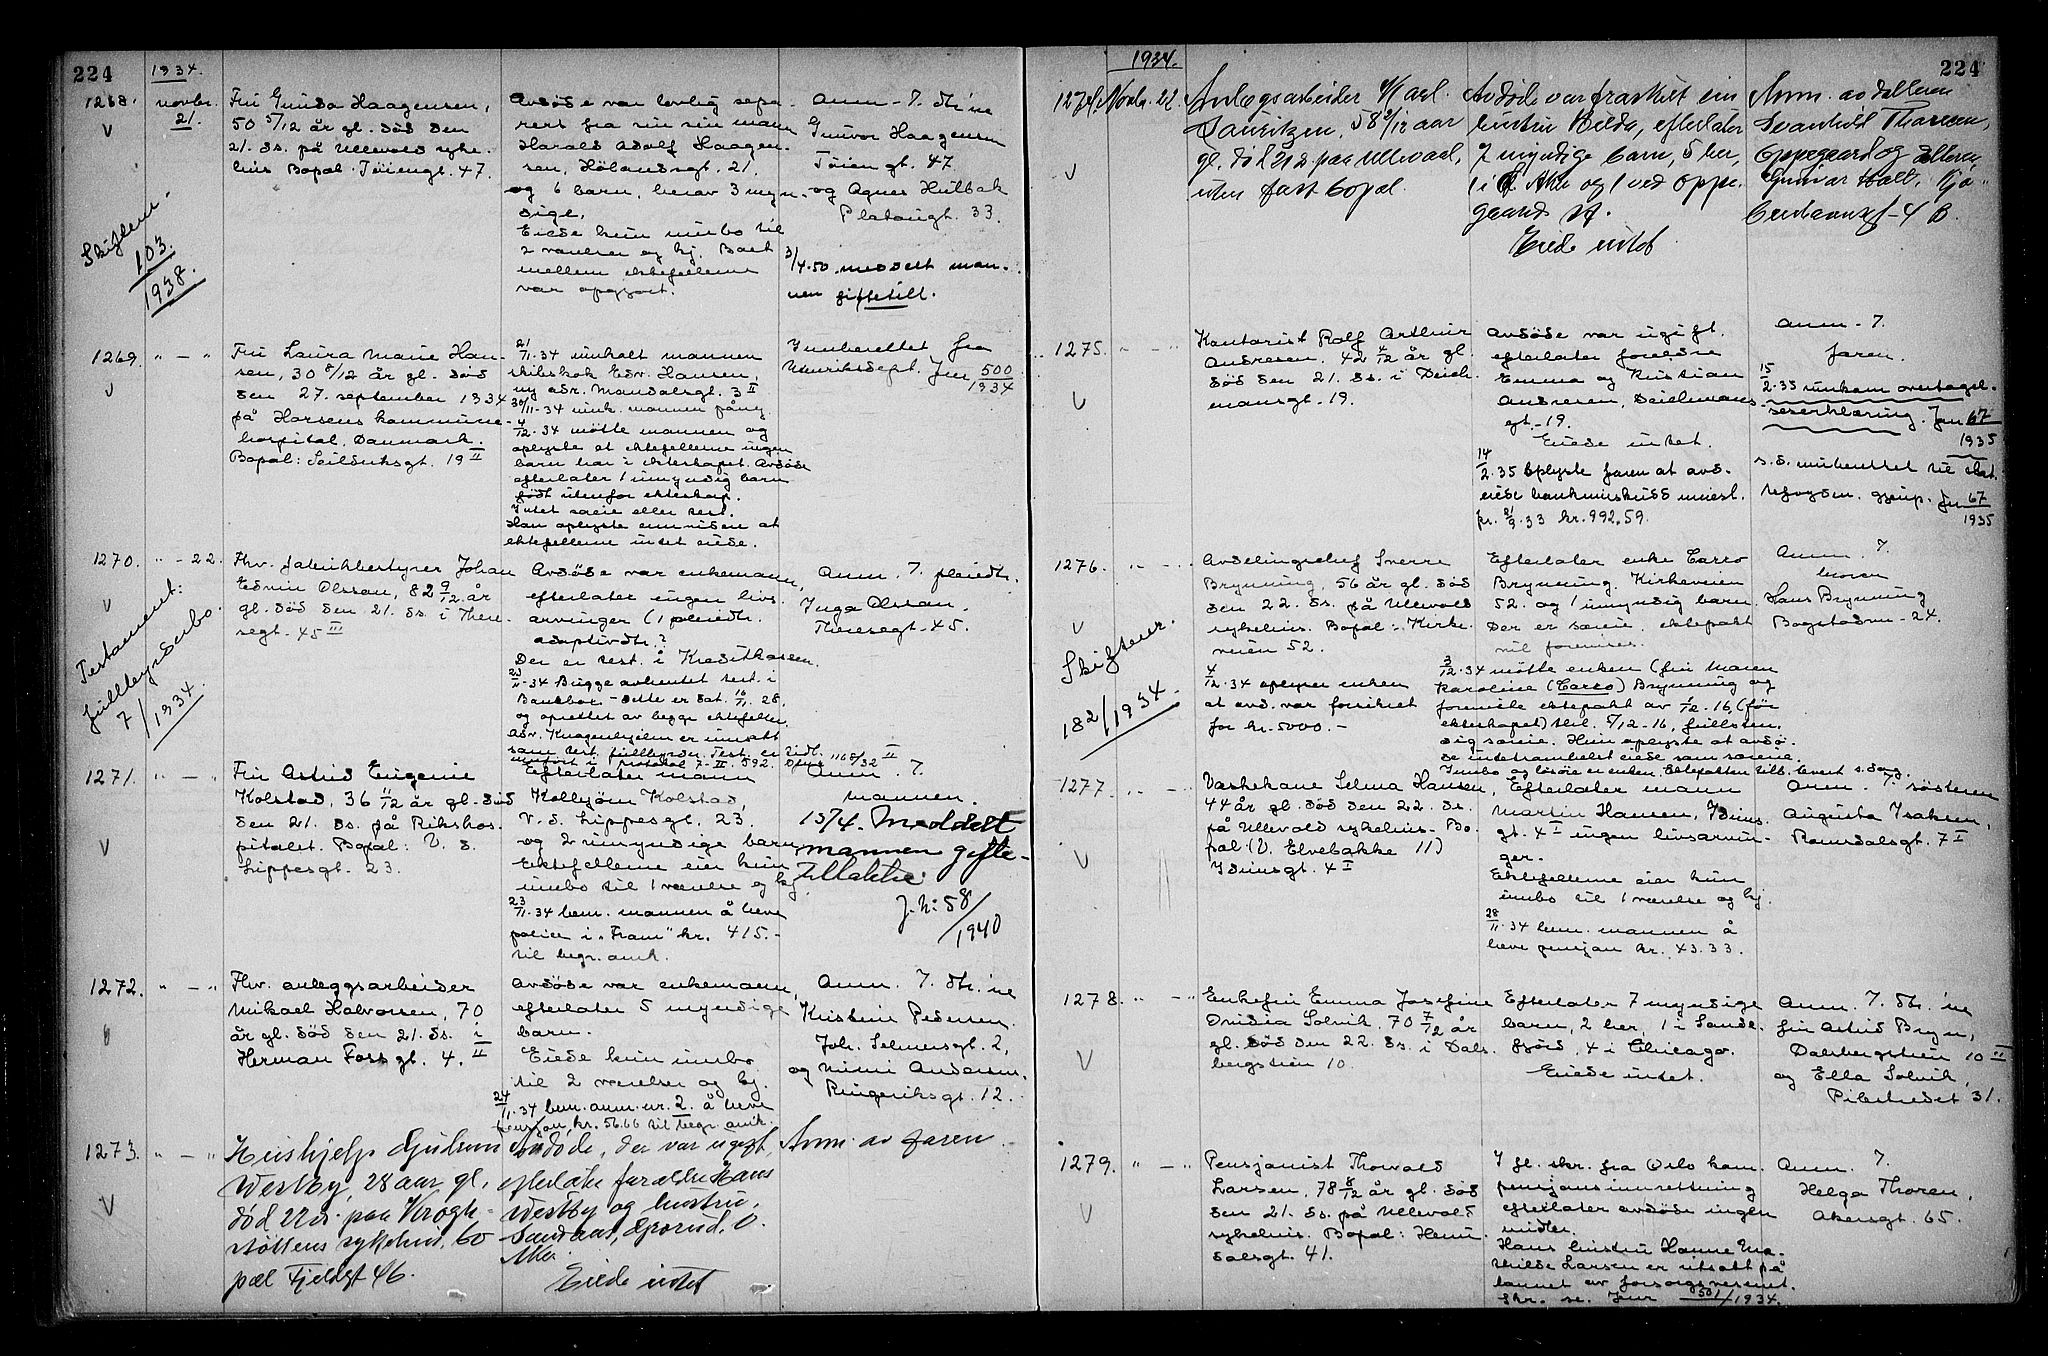 224
1934.
1268.
novbr.
21.
Fru Gunda Haagensen,
50 5/12 år gl. død den
21. ds. på Ullevold syke-
hus Bopæl. Tøiengt. 47.
Skiftem.
103.
1938.
Avdøde var lovlig sepa-
rert fra sin mann
Harald Adolf Haagen-
sen, Hølandsgt. 21.
og 6 barn, herav 3 myn-
dige.
Eiede kun innbo til
2 værelser og kj. Boet
mellem ektefellene
var opgjort.
Anm. 7. dtr'ne
Gunvor Haagensen
Tøiengt. 47
og Agnes Hulbak
Platougt. 33.
3/4.50 meddelt man-
nen giftetill.
1269.
" - "
Fru Laura Marie Han-
sen, 30 8/12 år gl. død
den 27. september 1934
på Horsens kommune-
hospital, Danmark.
Bopæl: Seilduksgt. 19 II
21/11-34 innkalt mannen
skibskok Edv. Hansen,
ny adr. Mandalsgt. 3 II
30/11-34 innk. mannen påny.
4/12.34 møtte mannen og
oplyste at ektefellene ingen
barn har i ekteskapet. Avdøde
efterlater 1 umyndig barn
født utenfor ekteskap.
Intet særeie eller test.
Han oplyste ennvidere at
ektefellene intet eiede.
Innberettet fra
Utenriksdept. Jnr 500/1934
1270.
" - 22.
Fhv. fabrikkbestyrer Johan
Edvin Olsson, 82 9/12 år
gl. død den 21. ds. i There-
segt. 45 III
Testament:
fullbyrderbo.
7/1934.
Avdøde var enkemann,
efterlater ingen livs-
arvinger (1 pleiedtr.
adoptivdtr.?
Der er test. i Kreditkassen.
23/11-34 Bugge avhentet test. i
Bankbox - dette er dat. 16/11. 28.
og oprettet av begge ektefeller.
Adv. Knagenhjelm er innsatt
som test. fullbyrder. Test. er
innført i protokol 7-II. 592.
Anm. 7. pleiedtr.
Inga Olsson.
Theresegt. 45.
1271.
" - "
Fru Astrid Eugenie
Kolstad, 36 11/12 år gl. død
den 21. ds. på Rikshos-
pitalet. Bopæl: V. d.
Lippesgt. 23.
Efterlater mann
Kolbjörn Kolstad,
V. d. Lippesgt. 23.
og 2 umyndige barn
Ektefellene eier kun
innbo til 1 værelse og kj.
23/11.34 bem. mannen å heve
police i "Fram" kr. 415.-
til begr. omk.
Anm. 7.
mannen.
13/4. Meddelt
mannen gifte-
tillatelse
J. Nr. 58/1940
1272.
" - "
Fhv. anleggsarbeider
Mikael Halvorsen, 70
år gl. død den 21. ds. i
Herman Foss gt. 4. II
Avdøde var enkemann,
efterlater 5 myndige
barn.
Eiede kun innbo
til 2 værelser og kj.
24/11.34 bem. anm. nr. 2. å heve
pensjon kr. 56.66 til begr. omk.
Anm. 7. dtr.'ne
Kristine Pedersen.
Joh. Selmersgt. 2,
og Mimi Andersen,
Ringeriksgt. 12.
1273.
" - "
Hushjelp Gudrun
Westby, 28 aar gl.,
død 22 ds. paa Krogh-
støttens sykehus, bo-
pæl Fjeldgt 46.
Avdøde, der var ugift,
efterlater forældre Hans
Westby og hustru,
Ø.
Aker.
Eiede intet
Anm. av faren.
1934.
224
1274.
Novbr. 22.
Anlægsarbeider Karl
Lauritzen, 58 2/12 aar
gl. død 21 ds paa Ullevaal,
uten fast bopæl.
Avdøde var fraskilt sin
hustru Hilda, efterlater
7 myndige barn, 5 her,
1 i Ø. Aker og 1 ved Oppe-
gaard St.
Eiede intet
Anm. av datteren
Svanhild Thoresen,
Oppegaard og datteren,
Gunvor Holt, Kjø-
benhavnsgt. 4 B.
1275.
" - "
Kontorist Rolf Arthur
Andresen. 42 4/12 år gl.
død den 21. ds. i Deich-
mansgt. 19.
Avdøde var ugift.
efterlater foreldre
Emma og Kristian
Andresen, Deichmans-
gt. 19.
Eiede intet.
14/2.35 Oplyste faren at avd.
eiede bankinnskudd innest.
pr. 21/9.33 kr. 992.59.
Anm. 7.
faren.
15/2.35 innkom overtagel-
seserklæring. Jnr 67/1935
s.d. innberettet til skat-
Jnr 67/1935
1276.
" - "
Avdelingschef Sverre
Brynning, 56 år gl. død
den 22. ds. på Ullevold
sykehus. Bopæl: Kirke-
veien 52.
4/12.34 oplyser enken
at avd. var forsikret
for kr. 5000.-
Skiftem.
182/1934.
Efterlater enke Carro
Brynning, Kirkeveien
52. og 1 umyndig barn.
Der er særeie, ektepakt
vil forevises.
3/12.34 møtte enken (fru Maren
Karoline (Carro) Brynning og
foreviste ektepakt av 1/12-16, (før
ekteskapet) tbl. 5/12-16, fullsten-
dig særeie. Hun oplyste at avdø-
de intetsomhelst eiede som særeie.
Innbo og løsøre er enkens. Ektepakten tilb. levert s. dag.
Anm. 7.
broren
Hans Brynning
Bogstadvn. 24.
1277.
" - "
Vaskekone Selma Hansen,
44 år gl. død den 22. ds.
på Ullevold sykehus. Bo-
pæl (V. Elvebakke 11)
Idunsgt. 4 I
Efterlater mann
Martin Hansen, Iduns-
gt. 4 I ingen livsarvin-
ger.
Ektefellene eier kun
innbo til 1 værelse og kj.
28/11.34 bem. mannen å
heve pensjon kr. 43.33.
Anm. 7. søsteren
Augusta Isaksen,
Romsdalsgt. 7 I
1278.
" - "
Enkefru Emma Josefine
Ovidia Solvik. 70 7/12 år
gl. død den 22. ds. i Dals-
bergstien 10.
Efterlater 7 myndige
barn, 2 her, 1 i Sande-
fjord, 4 i Chicago.
Eiede intet.
Anm. 7. dtr.'ne
fru Astrid Bryn,
Dalsbergstien 10 II
og Ella Solvik,
Pilestredet 31.
1279.
" - "
Pensjonist Thorvald
Larsen, 78 8/12 år gl. død
den 21. ds. på Ullevold
sykehus. Bopæl: Heim-
dalsgt. 41.
I fl. skr. fra Oslo kom.
pensjonsinnretning
efterlater avdøde ingen
midler.
Hans hustru Hanne Ma-
thilde Larsen er utsatt på
landet av forsorgsvesenet.
Skr. se. Jnr 501/1934.
Anm. 7.
Helga Thoresen,
Akersgt. 65.